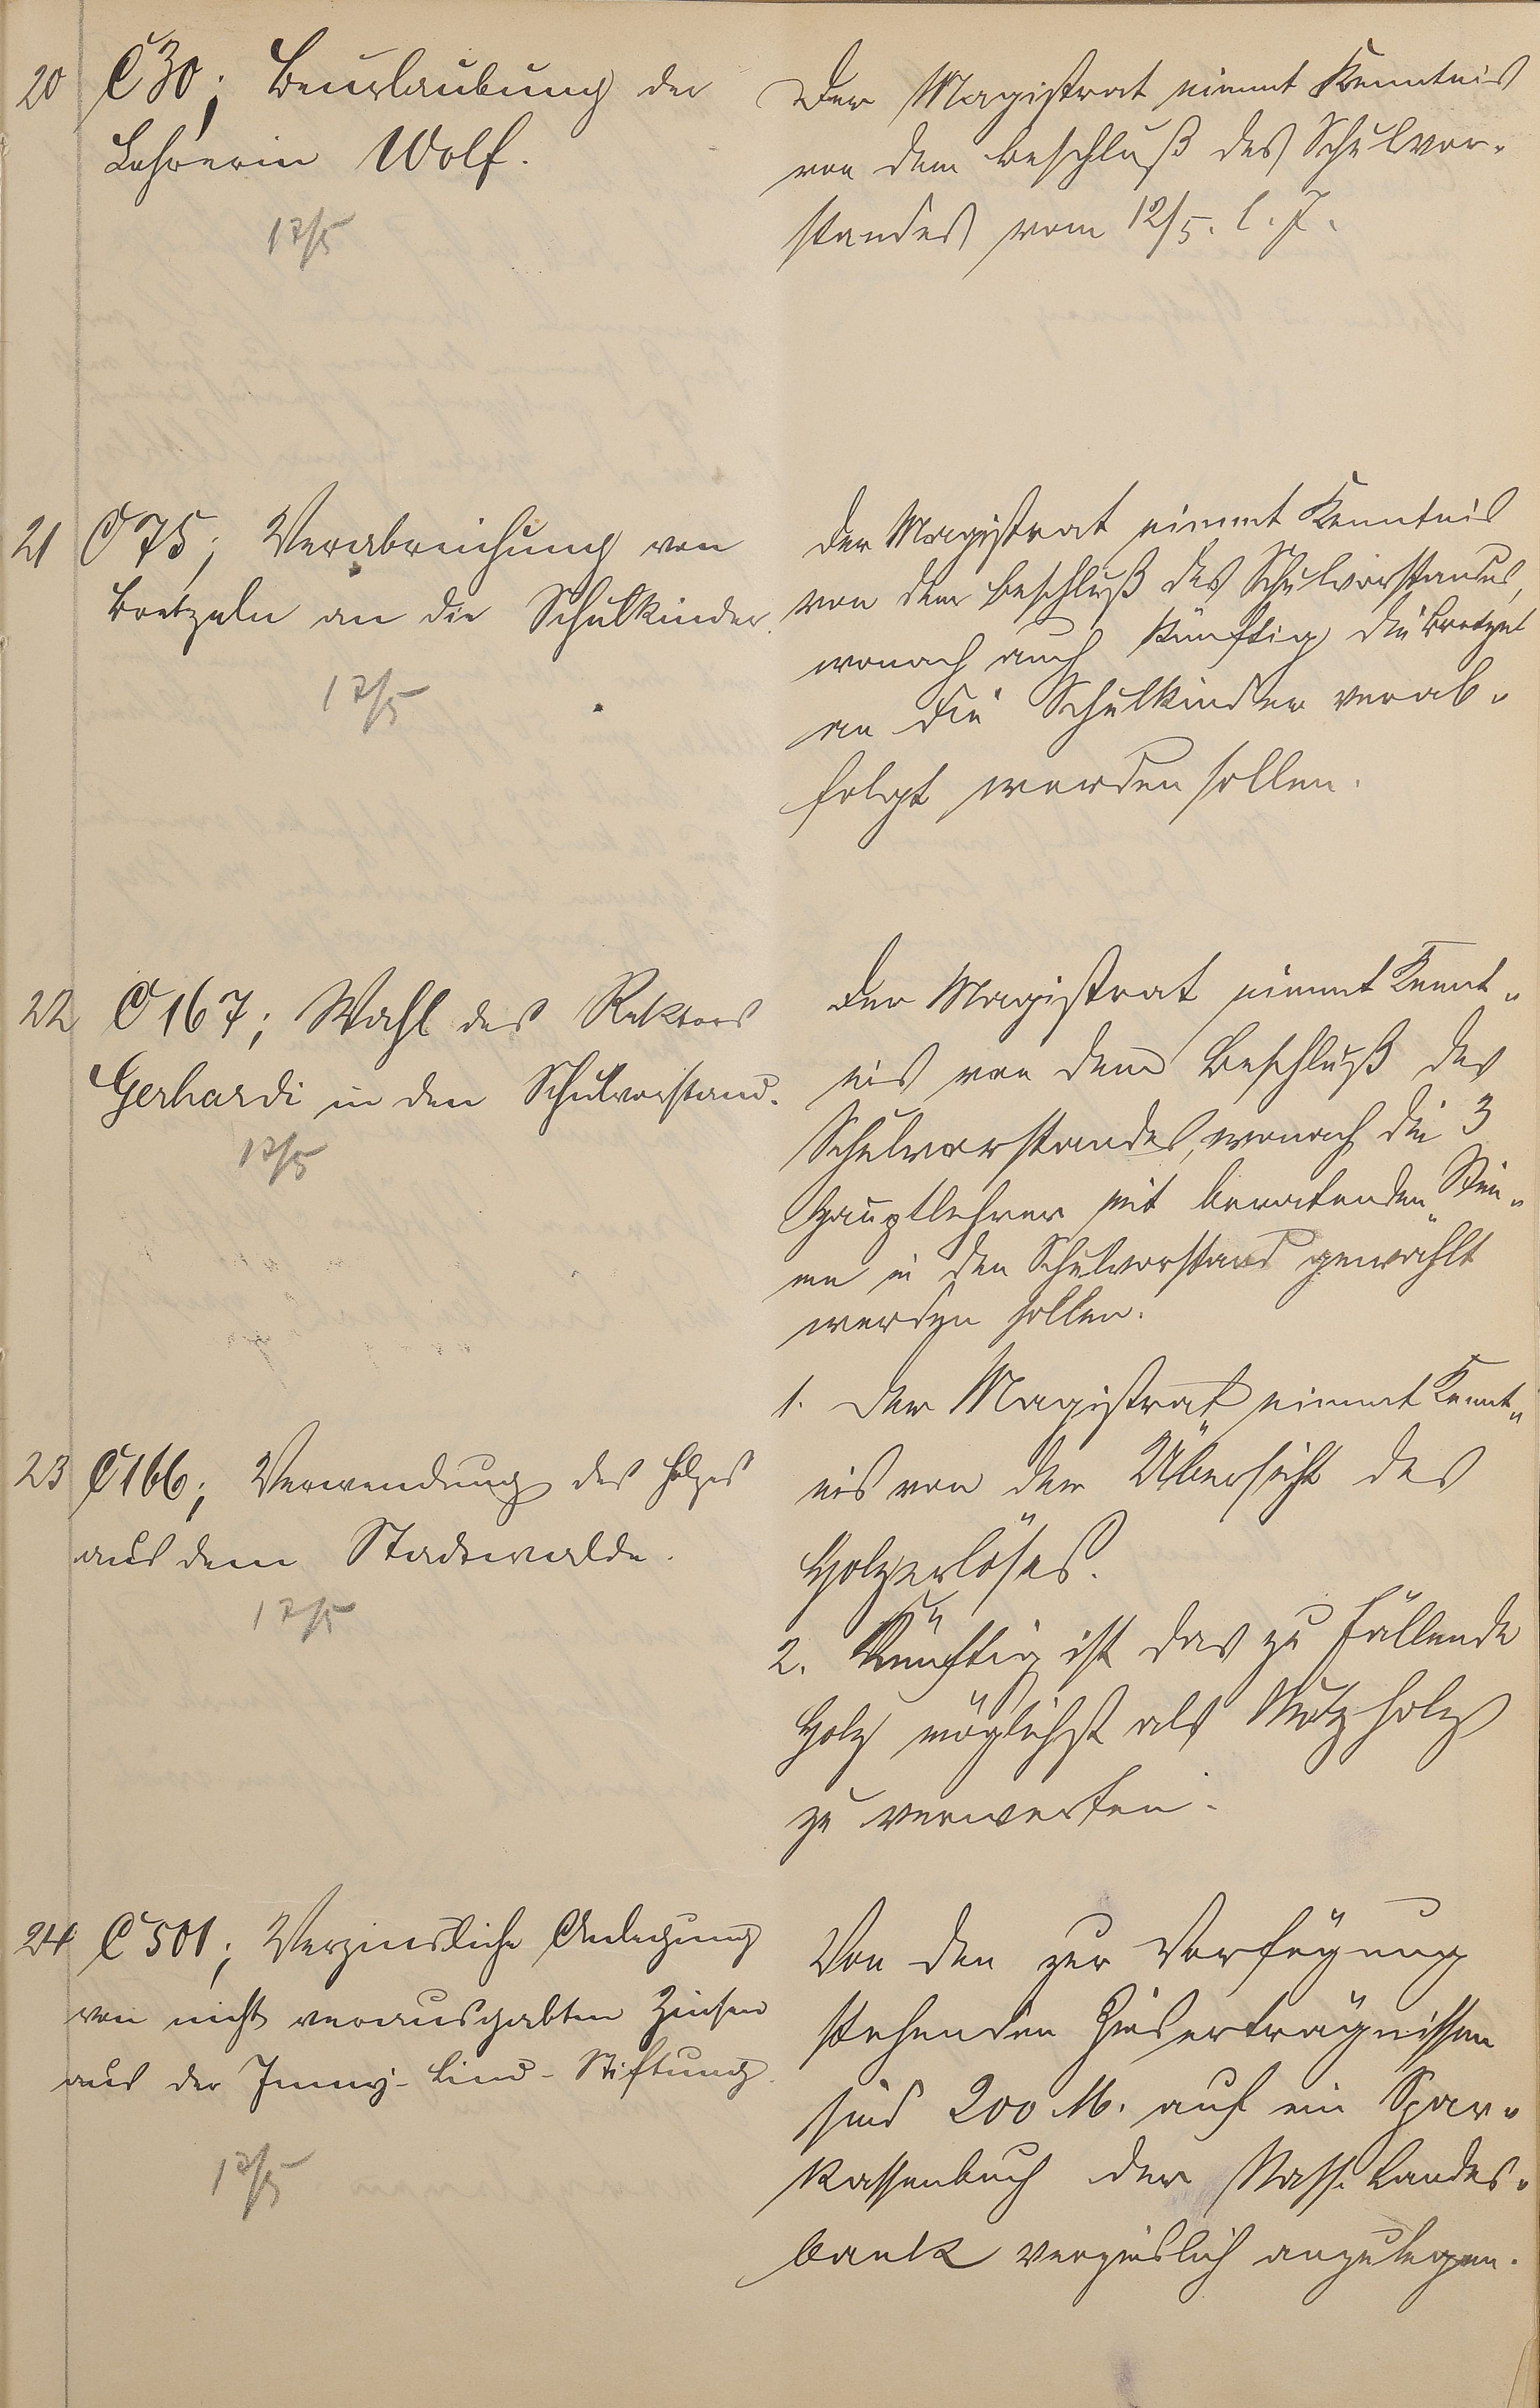 20 C 30; Beurlaubung der
Lehrerin Wolf.
17/5
Der Magistrat nimmt Kenntnis
von dem Beschluß des Schulvor-
standes vom 12/5. l. J.
21 C 75; Verabreichung von
Bretzeln an die Schulkinder.
17/5
Der Magistrat nimmt Kenntnis
von dem Beschluß des Schulvorstandes,
wonach auch künftig die Bretzel
an die Schulkinder verab-
folgt werden sollen.
22 C 167; Wahl des Rektors
Gerhardi in den Schulvorstand.
17/5
Der Magistrat nimmt Kennt-
nis von dem Beschluß des
Schulvorstandes, wonach die 3
Hauptlehrer mit beratenden Stim-
me in den Schulvorstand gewählt
werden sollen.
23 C 166; Verwendung des Holzes
aus dem Stadtwalde.
17/5
1. Der Magistrat nimmt Kennt-
nis von der Übersicht des
Holzerlöses.
2. Künftig ist das zu fällende
Holz möglichst als Nutzholz
zu verwerten.
24 C 501; Verzinsliche Anlegung
von nicht verausgabten Zinsen
aus der Jenny-Lind-Stiftung.
17/5
Von den zur Verfügung
stehenden Zinserträgnissen
sind 200 M. auf ein Spar-
kassenbuch der Nass. Landes-
bank verzinslich anzulegen.